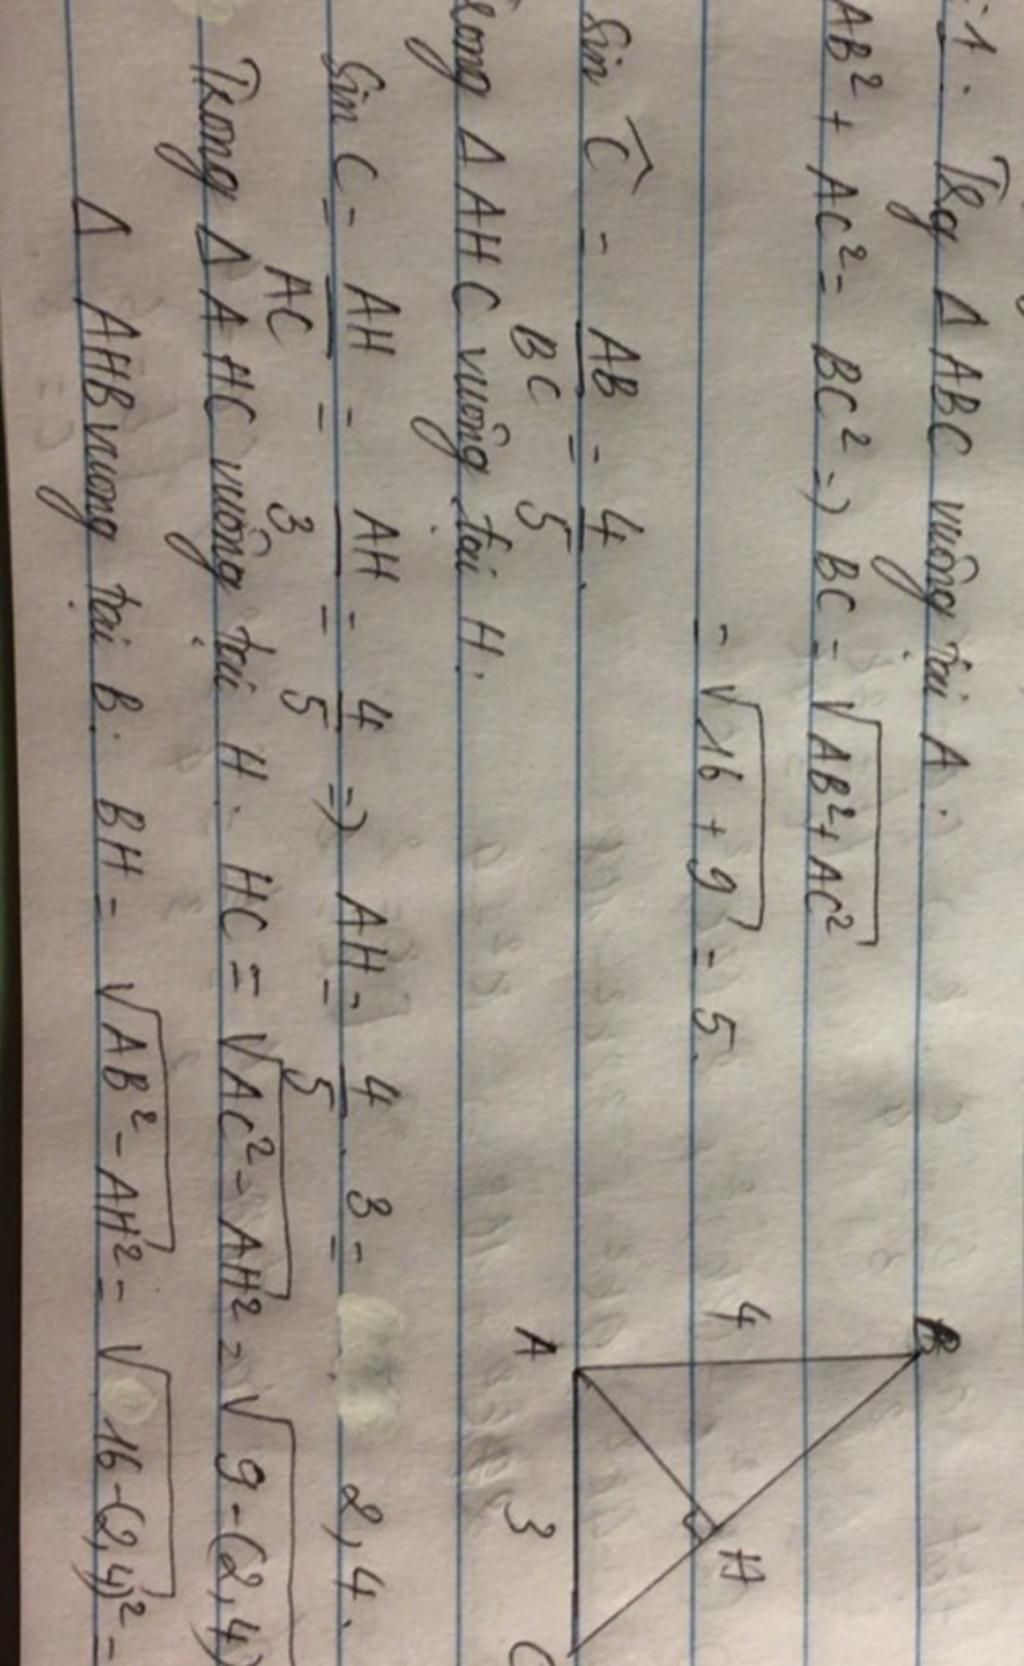 1. Trg Δ ABC vuông tại A.
AB² + AC² = BC² => BC = √AB² + AC²
= √16 + 9 = 5.
Sin Ĉ = AB/BC = 4/5.
Trong Δ AHC vuông tại H.
Sin C = AH/AC = AH/3 = 4/5 => AH = 4/5 . 3 = 2,4.
Trong Δ AHC vuông tại H. HC = √AC² - AH² = √9 - (2,4)
Δ AHB vuông tại B. BH = √AB² - AH² = √16 - (2,4)² =
B
4
H
A
3
C